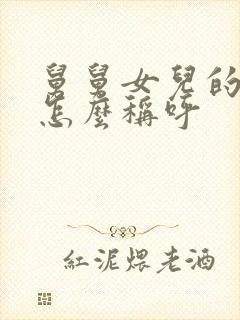 舅舅女兒的
怎麼稱呼
紅泥煨老酒